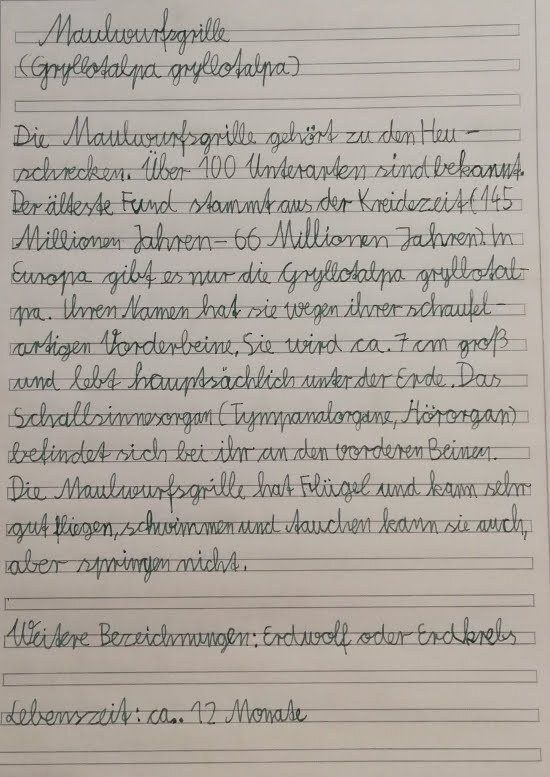 Maulwurfsgrille
(Gryllotalpa gryllotalpa)
Die Maulwurfsgrille gehört zu den Heu-
schrecken. Über 100 Unterarten sind bekannt.
Der älteste Fund stammt aus der Kreidezeit (145
Millionen Jahren - 66 Millionen Jahren). In
Europa gibt es nur die Gryllotalpa gryllotal-
pa. Ihren Namen hat sie wegen ihrer schaufel-
artigen Vorderbeine. Sie wird ca. 7 cm groß
und lebt hauptsächlich unter der Erde. Das
Schallsinnesorgan (Tympanalorgane, Hörorgan)
befindet sich bei ihr an den vorderen Beinen.
Die Maulwurfsgrille hat Flügel und kann sehr
gut fliegen, schwimmen und tauchen kann sie auch,
aber springen nicht.
Weitere Bezeichnungen: Erdwolf oder Erdkrebs
Lebenszeit: ca.. 12 Monate